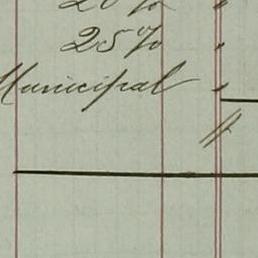 20%  "
25%  "
Municipal  "
"